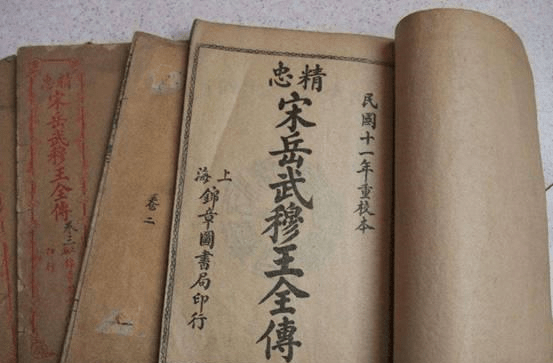 民國十一年重校本
精忠
宋岳武穆王全傳
上海
錦章圖書局印行
卷二
精忠
宋岳武穆王全傳
卷三